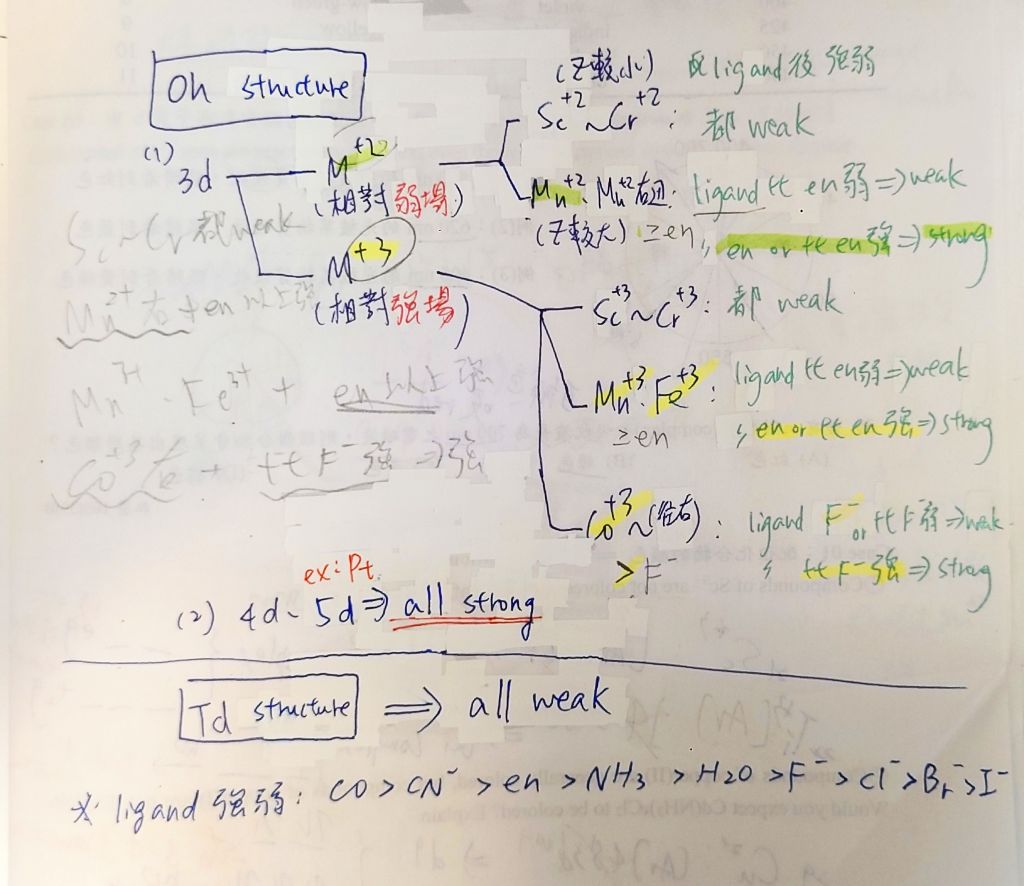 Oh structure
(1)
3d
M+2
(相對弱場)
(Z較小) 及ligand後強弱
Sc+2~Cr+2: 都 weak
Mn+2. Mn+2右邊: ligand 比 en弱 => weak
(Z較大) ≥en 〃 en or 比 en強 => strong
M+3
(相對強場)
Sc+3~Cr+3: 都 weak
Mn+3. Fe+3: ligand 比 en弱 => weak
≥en 〃 en or 比 en強 => strong
Co+3~(往右): ligand F- or 比F-弱 => weak
>F- 〃 比F-強 => strong
Sc~Cr都weak
Mn2+右+en以上強
Mn3+. Fe3+ + en以上強
Co+3 右+ 比F-強 => 強
ex: Pt
(2) 4d. 5d => all strong
Td structure => all weak
※ ligand 強弱: CO > CN- > en > NH3 > H2O > F- > Cl- > Br- > I-